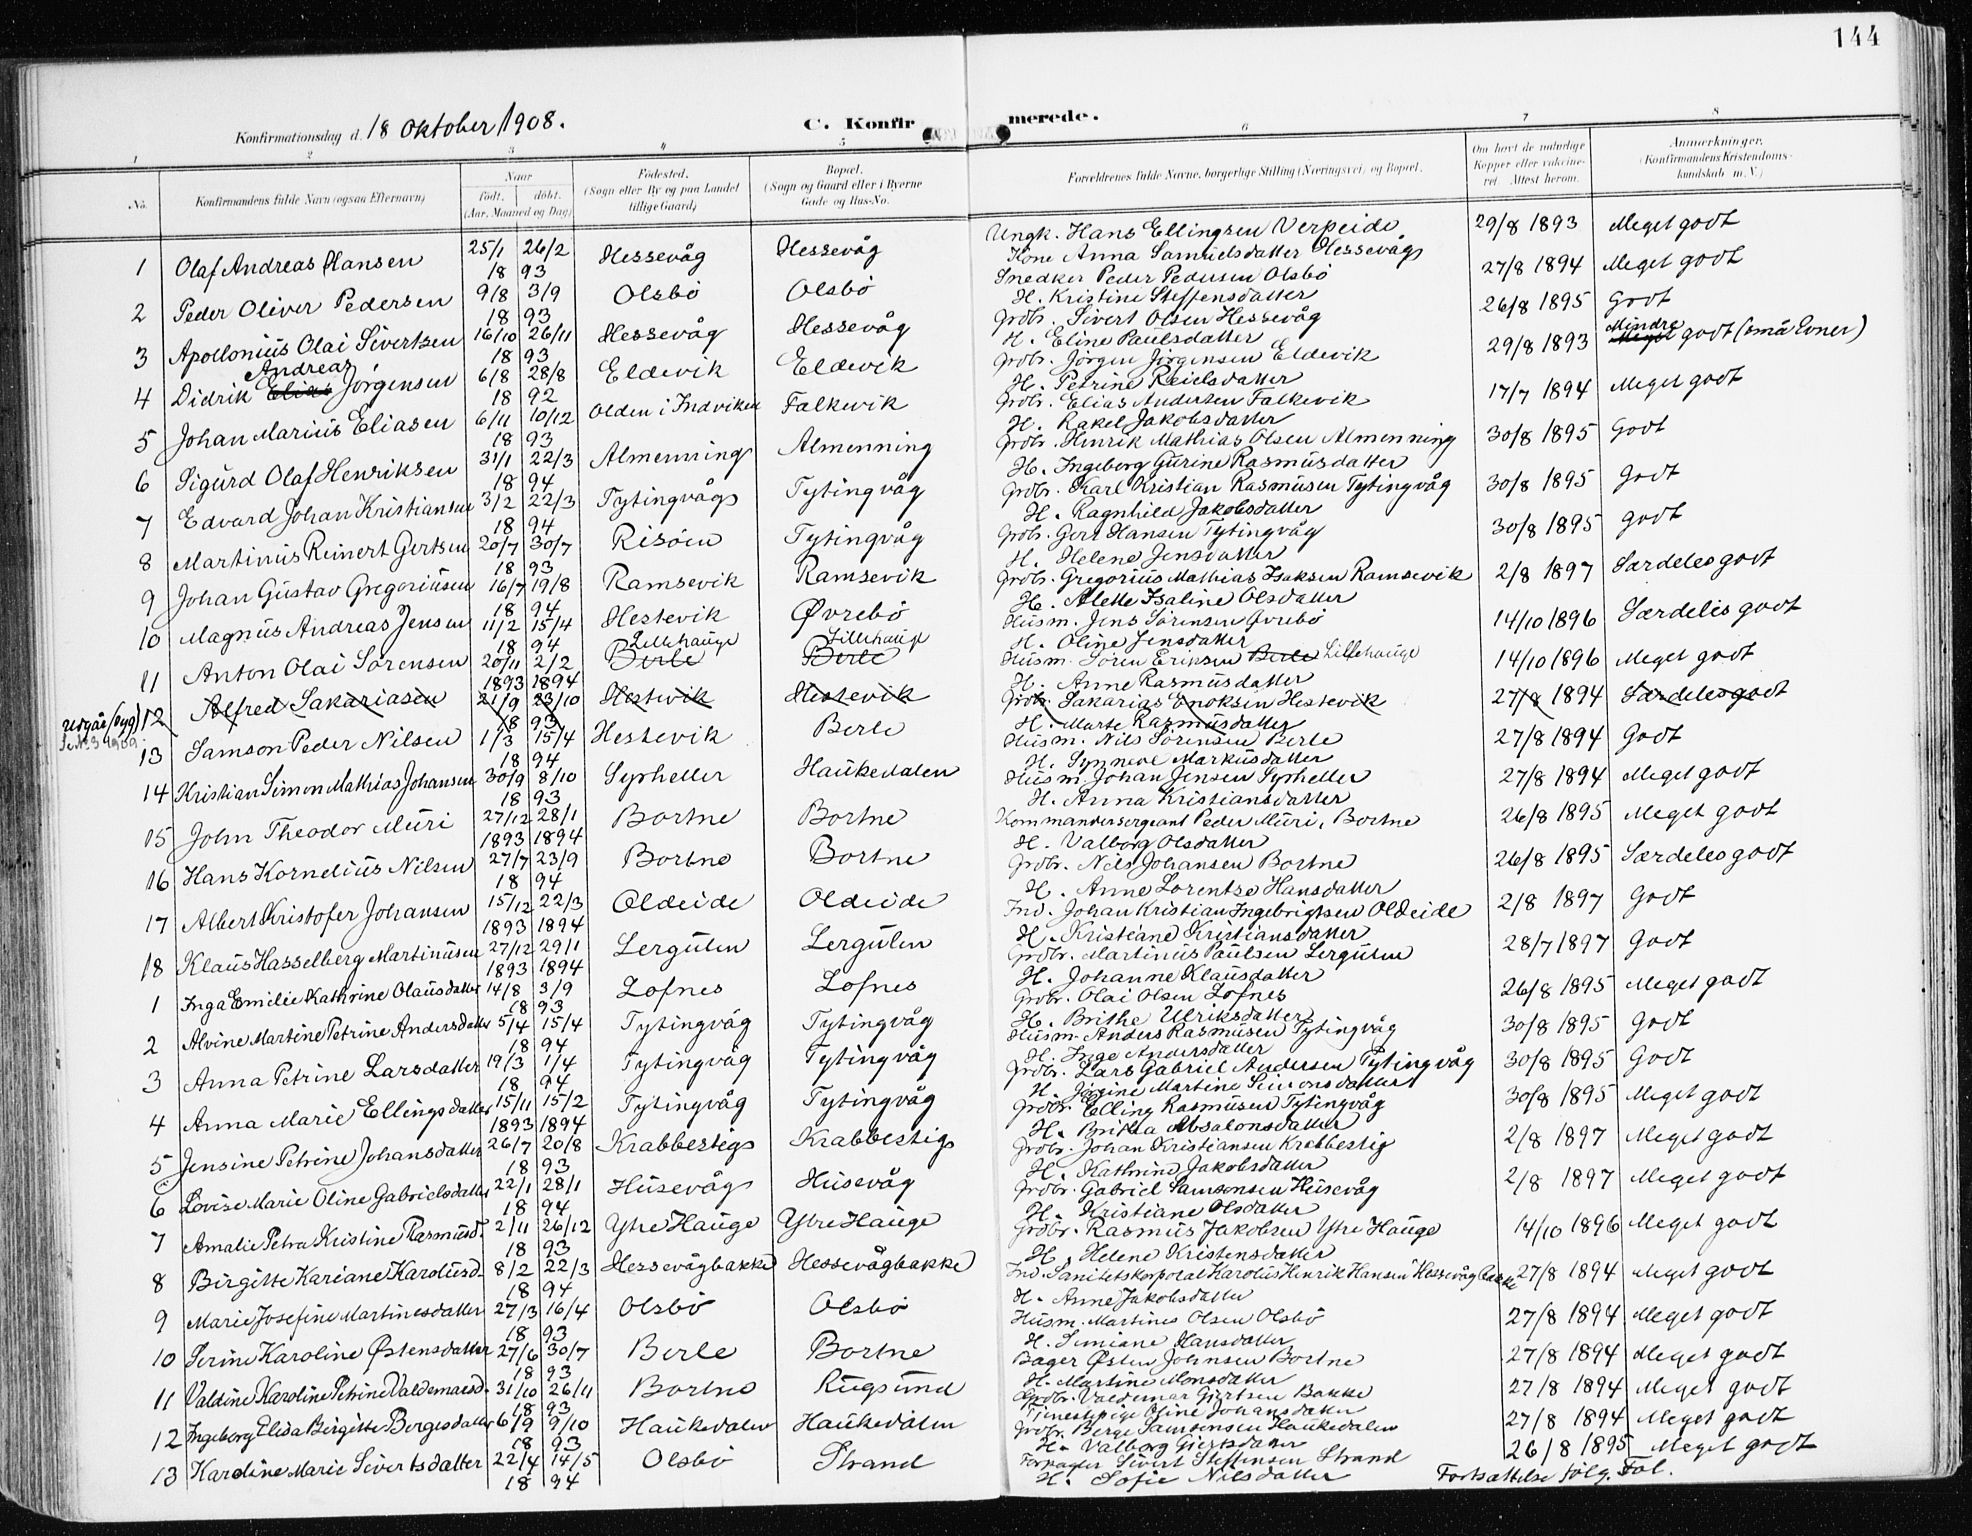 144
Konfirmationsdag d. 18 Oktober 1908.
C. Konfirmerede.
1 2 3 4 5 6 7 8
No. Konfirmandens fulde Navn (ogsaa Efternavn) Naar født. døbt. (Aar, Maaned og Dag) Fødested. (Sogn eller By og paa Landet tillige Gaard) Bopæl. (Sogn og Gaard eller i Byerne Gade og Hus-No. Forældrenes fulde Navne, borgerlige Stilling (Næringsvei) og Bopæl. Om havt de naturlige Kopper eller vaccineret. Attest herom. Anmerkninger. (Konfirmandens Kristendomskundskab m. V.)
1 Olaf Andreas Hansen 25/1 26/2 1893 Hessevåg Hessevåg Ungk. Hans Ellingsen Verpeide 29/8 1893 Meget godt
Kone Anna Samuelsdatter Hessevåg
2 Peder Oliver Pedersen 9/8 3/9 1893 Olsbö Olsbö Snedker Peder Pedersen Olsbö 27/8 1894 Meget godt
H. Kristine Steffensdatter
3 Apollonius Olai Sivertsen 16/10 26/11 1893 Hessevåg Hessevåg Grdbr. Sivert Olsen Hessevåg 26/8 1895 Godt
H. Eline Paulsdatter
4 Didrik Elias Andreas Jörgensen 6/8 28/8 1892 Eldevik Eldevik Grdbr. Jörgen Jörgensen Eldevik 29/8 1893 Meget Mindre godt (små Evner)
H. Petrine Reielsdatter
5 Johan Marius Eliasen 6/11 10/12 1893 Olden i Indviken Falkevik Grdbr. Elias Andersen Falkevik 17/7 1894 Meget godt
H. Rakel Jakobsdatter
6 Sigurd Olaf Henriksen 31/1 22/3 1894 Almenning Almenning Grdbr. Henrik Mathias Olsen Almenning 30/8 1895 Godt
H. Ingeborg Gurine Rasmusdatter
7 Edvard Johan Kristiansen 3/2 22/3 1894 Tytingvåg Tytingvåg Grdbr. Karl Kristian Rasmusen Tytingvåg 30/8 1895 Godt
H. Ragnhild Jakobsdatter
8 Martinus Reinert Gertsen 20/7 30/7 1893 Risöen Tytingvåg Grdbr. Gert Hansen Tytingvåg 30/8 1895 Godt
H. Helene Jensdatter
9 Johan Gustav Gregoriusen 16/7 19/8 1894 Ramsevik Ramsevik Grdbr. Gregorius Mathias Isaksen Ramsevik 2/8 1897 Særdeles godt
H. Alette Isaline Olsdatter
10 Magnus Andreas Jensen 11/2 15/4 1894 Hestevik Øvrebö Husm. Jens Sörensen Øvrebö 14/10 1896 Særdeles godt
H. Oline Jensdatter
11 Anton Olai Sörensen 20/11 2/2 1893 1894 Berle Lillehauge Berle Lillehauge Husm. Sören Eriksen Berle Lillehauge 14/10 1896 Meget godt
H. Anne Rasmusdatter
Udgår (syg) Se No 3 1909. 12 Alfred Sakariasen 21/9 23/10 1893 Hestevik Hestevik Grdbr. Sakarias Enoksen Hestevik 27/8 1894 Særdeles godt
H. Marte Rasmusdatter
13 Samson Peder Nilsen 1/3 15/4 1894 Hestevik Berle Husm. Nils Sörensen Berle 27/8 1894 Godt
H. Synneve Markusdatter
14 Kristian Simon Mathias Johansen 30/9 8/10 1893 Syrheller Haukedalen Husm. Johan Jensen Syrheller 27/8 1894 Meget godt
H. Anna Kristiansdatter
15 John Theodor Muri 27/12 28/1 1893 1894 Bortne Bortne Kommandersergeant Peder Muri, Bortne 26/8 1895 Meget godt
H. Valborg Olsdatter
16 Hans Kornelius Nilsen 27/7 23/9 1894 Bortne Bortne Grdbr. Nils Johansen Bortne 26/8 1895 Særdeles godt
H. Anne Lorentse Hansdatter
17 Albert Kristofer Johansen 15/12 22/3 1893 1894 Oldeide Oldeide Ind. Johan Kristian Ingebrigtsen Oldeide 2/8 1897 Godt
H. Kristiane Kristiansdatter
18 Klaus Hasselberg Martinusen 27/12 29/1 1893 1894 Lergulen Lergulen Grdbr. Martinus Paulsen Lergulen 28/7 1897 Godt
H. Johanne Klausdatter
1 Inga Emilie Kathrine Olausdatter 14/8 3/9 1893 Lofnes Lofnes Grdbr. Olai Olsen Lofnes 26/8 1895 Meget godt
H. Brithe Ulriksdatter
2 Alvine Martine Petrine Andersdatter 5/4 15/4 1894 Tytingvåg Tytingvåg Husm. Anders Rasmusen Tytingvåg 30/8 1895 Godt
H. Inge Andersdatter
3 Anna Petrine Larsdatter 19/3 1/4 1894 Tytingvåg Tytingvåg Grdbr. Lars Gabriel Andersen Tytingvåg 30/8 1895 Godt
H. Jörgine Martine Simonsdatter
4 Anna Marie Ellingsdatter 15/11 15/2 1893 1894 Tytingvåg Tytingvåg Grdbr. Elling Rasmusen Tytingvåg 30/8 1895 Meget godt
H. Britha Absalonsdatter
5 Jensine Petrine Johansdatter 26/7 20/8 1893 Krabbestig Krabbestig Grdbr. Johan Kristiansen Krabbestig 2/8 1897 Meget godt
H. Kathrine Jakobsdatter
6 Lovise Marie Oline Gabrielsdatter 22/1 28/1 1894 Husevåg Husevåg Grdbr. Gabriel Samsonsen Husevåg 2/8 1897 Meget godt
H. Kristiane Olsdatter
7 Amalie Petra Kristine Rasmusd. 2/11 26/12 1893 Ytre Hauge Ytre Hauge Grdbr. Rasmus Jakobsen Ytre Hauge 14/10 1896 Meget godt
H. Helene Kristensdatter
8 Birgitte Kariane Karolusd. 8/2 22/3 1894 Hessevågbakke Hessevågbakke Ind. Sanitetskorporal Karolus Henrik Hansen Hessevågbakke 27/8 1894 Meget godt
H. Anne Jakobsdatter
9 Marie Josefine Martinesdatter 27/3 16/4 1893 Olsbö Olsbö Husm. Martines Olsen Olsbö 27/8 1894 Meget godt
H. Simiane Hansdatter
10 Serine Karoline Østensdatter 27/6 30/7 1893 Berle Bortne Bager Østen Johnsen Bortne 27/8 1894 Meget godt
H. Martine Monsdatter
11 Valdine Karoline Petrine Valdemarsd. 31/10 26/11 1893 Bortne Rugsund Grdbr. Valdemar Giertsen Bakke 27/8 1894 Meget godt
Tjenestepige Oline Johansdatter
12 Ingeborg Elisa Birgitte Bergesdatter 6/9 9/10 1893 Haukedalen Haukedalen Grdbr. Berge Samsonsen Haukedalen 27/8 1894 Meget godt
H. Valborg Giertsdatter
13 Karoline Marie Sivertsdatter 22/4 14/5 1894 Olsbö Strand Forpagter Sivert Steffensen Strand 26/8 1895 Meget godt
H. Sofie Nilsdatter Fortsættelse fölg. Fol.